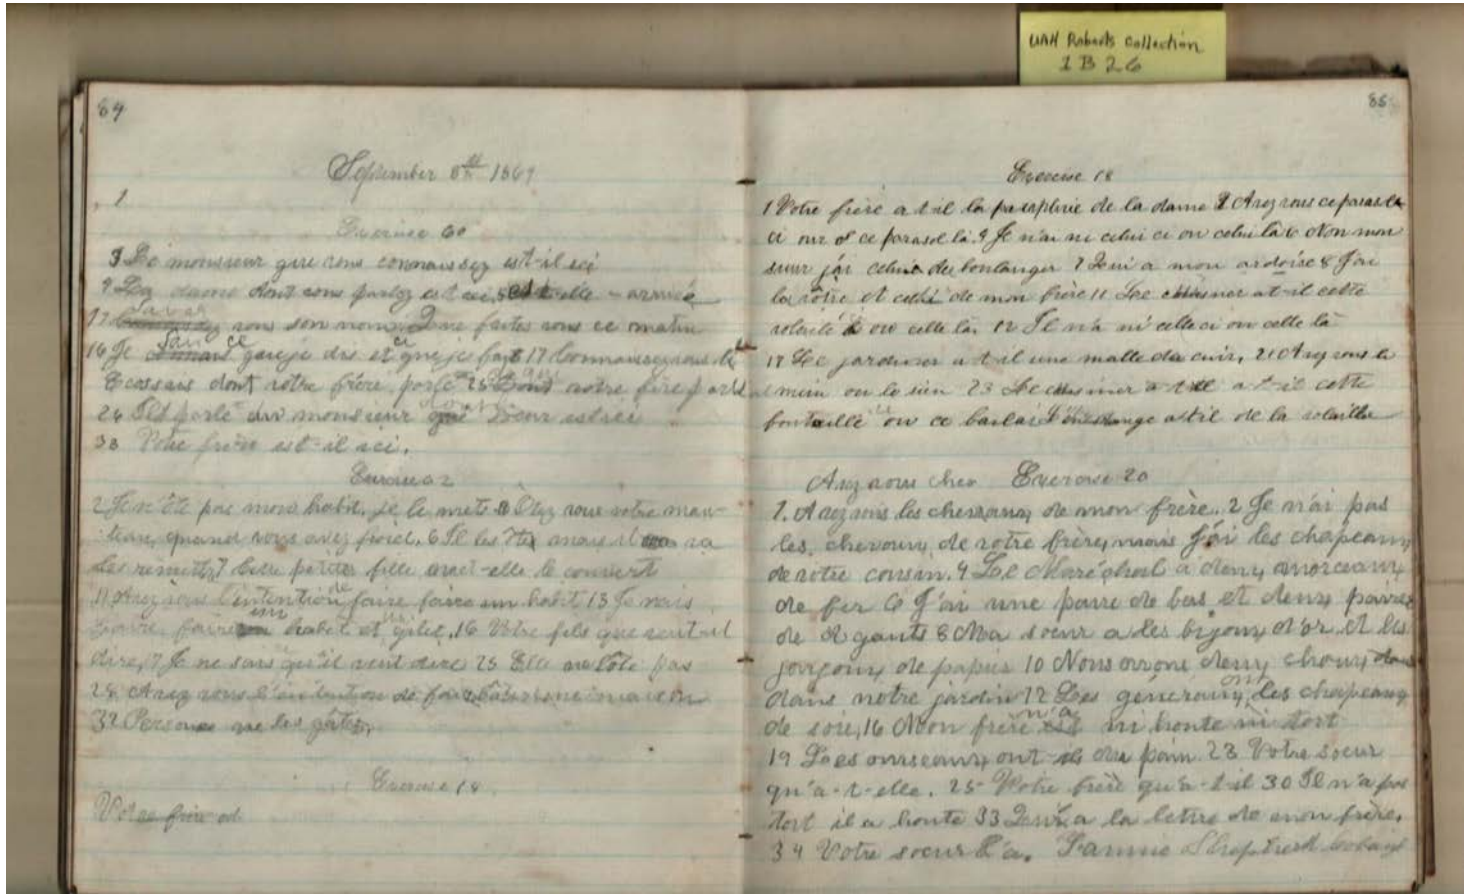 UAH Roberts Collection
1 B 26
84
September 8th 1869
1
Exercise 60
3 Le monsieur que vous connaissez est-il ici
9 La dame dont vous parlez est ici, est-elle arrivée
11 Savez vous son nom. Que faites vous ce matin
16 Je sais ce que je dis et ce que je fais 17 Connaissez vous le
Ecossais dont votre frère parle 25 votre frère parle
26 Il parle du monsieur dont soeur est ici
38 Votre frère est-il ici.
Exercise 2
2 Je n'ôte pas mon habit, je le mets 3 Otez vous votre man-
teau, quand vous avez froid. 6 Il les ôte mais il va
les remettre 7 Cette petite fille met-elle le couvert
11 Avez vous l'intention de faire faire un habit 13 Je vais
faire faire un habit et un gilet. 16 Votre fils que veut-il
dire, 17 Je ne sais qu'il veut dire 25 Elle ne l'ôte pas
28 Avez vous l'intention de faire bâtir une maison
32 Personne ne les gâte.
Exercise 18
Votre frère at
85
Exercise 18
1 Votre frère a t-il la parapluie de la dame 2 Avez vous ce parasol
ci ou ce parasol là 3 Je n'ai ni celui ci ou celui là 6 Non mon
sieur j'ai celui du boulanger 7 Qui a mon ardoise 8 J'ai
la vôtre et celui de mon frère 11 Le cuisiner a t-il cette
volaille ou celle là. 12 Il n'a ni celle ci ou celle là
17 Le jardinier a t-il une malle du cuir, 21 Avez vous le
mien ou le sien 23 Le cuisiner a t-il cette
bouteille ou ce balai a t-il de la volaille
Avez vous chev Exercise 20
1. Avez vous les chevaux de mon frère. 2 Je n'ai pas
les chevaux de votre frère, mais j'ai les chapeaux
de votre cousin. 4 Le Maréchal a deux morceaux
de fer 6 J'ai une paire de bas et deux paires
de gants 8 Ma soeur a des bijoux d'or et les
joujoux de papier 10 Nous avons deux choux
dans notre jardin 12 Les généraux ont des chapeaux
de soie, 16 Mon frère n'a ni honte ni tort
19 Les ouiseaux ont-ils du pain 23 Votre soeur
qu'a-t-elle. 25 Votre frère qu'a-t-il 30 Il n'a pas
tort il a honte 33 Qui a la lettre de mon frère.
34 Votre soeur l'a. Fannie